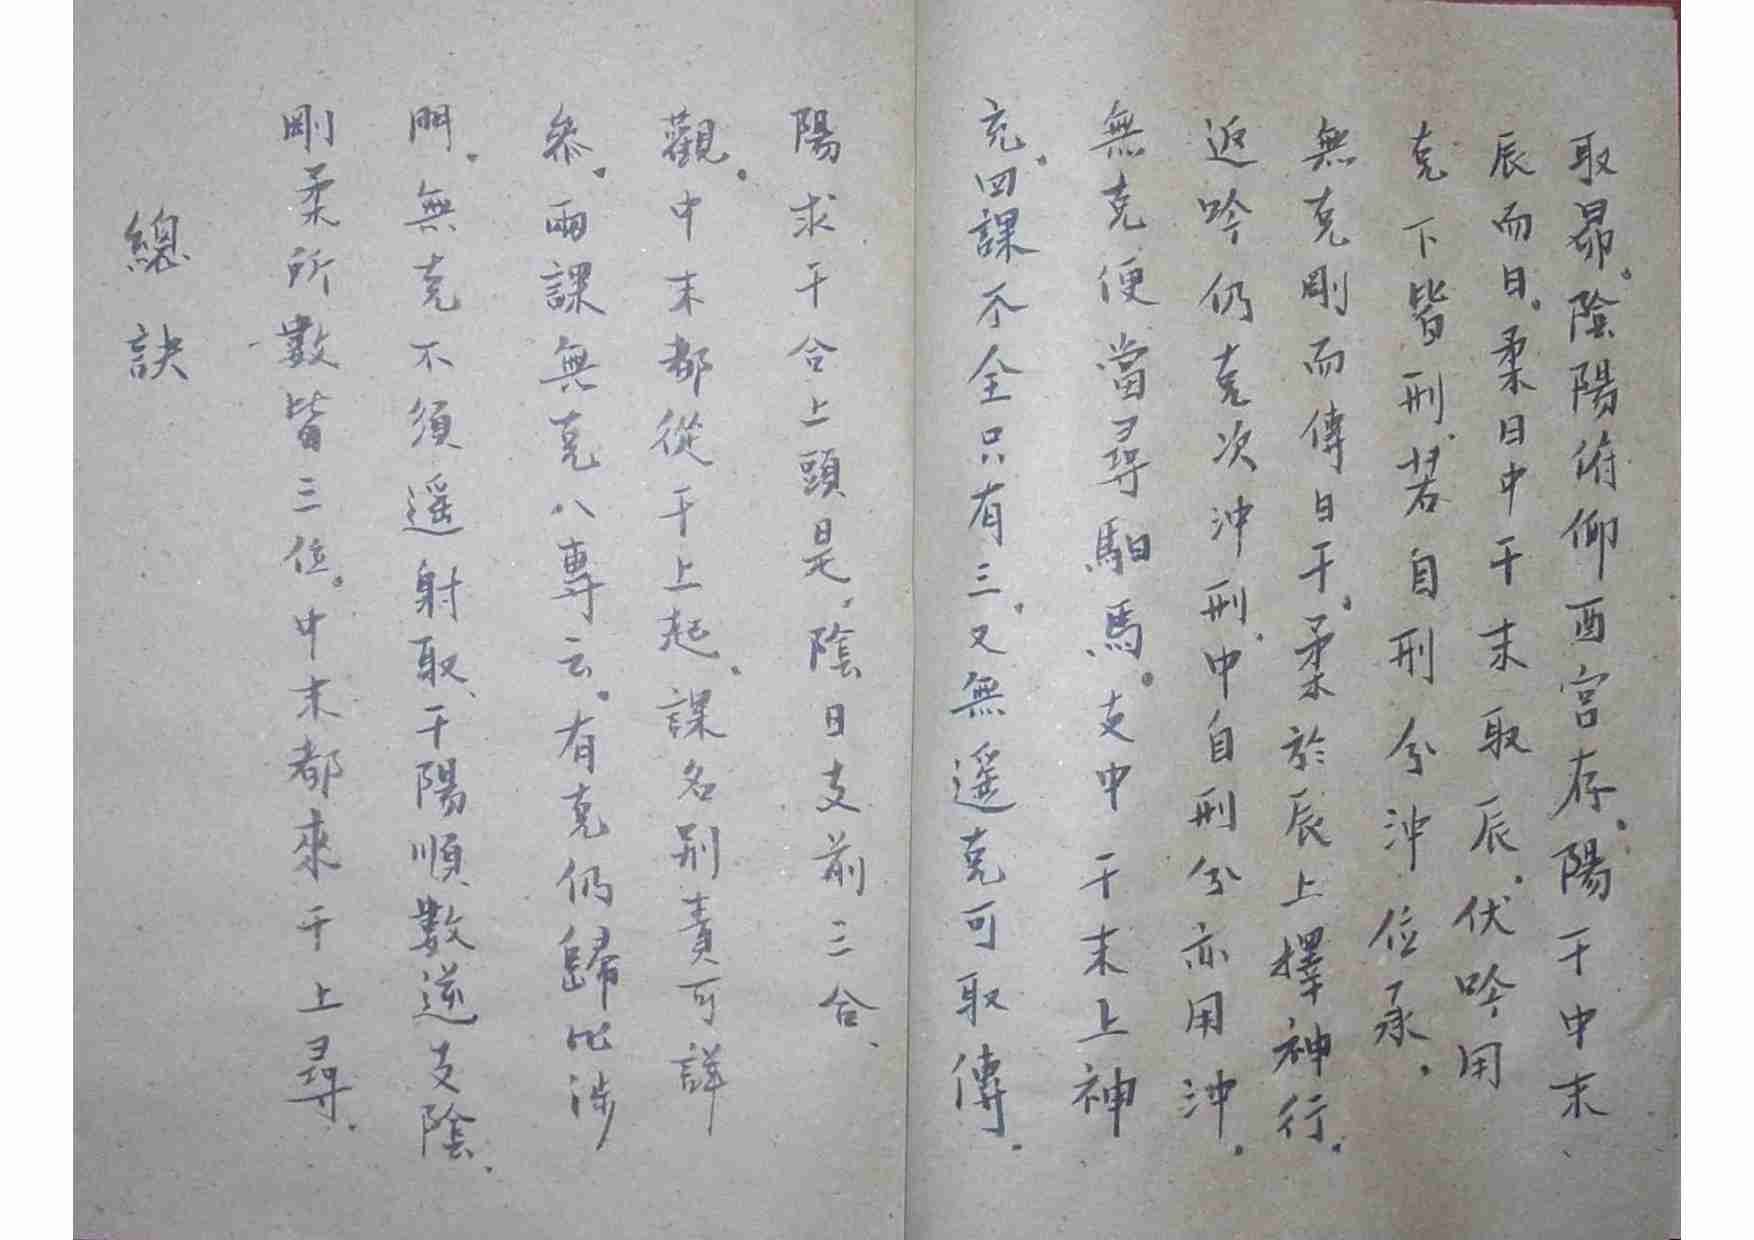 取昴。陰陽俯仰酉宮存。陽干中末
辰而日。柔日中干末取辰。伏吟用
克下皆刑、若自刑兮沖位承。
無克剛而傳日干。柔於辰上擇神行。
返吟仍克次沖刑、中自刑兮亦用沖。
無克便當尋馹馬。支中干末上神
充、四課不全只有三、又無遥克可取傳。
陽求干合上頭是、陰日支前三合、
觀。中末都從干上起、課名别責可詳
叅。兩課無克八專云。有克仍歸比涉
門。無克不須遥射取、干陽順數逆支陰、
剛柔所數皆三位。中末都來干上尋、
總訣